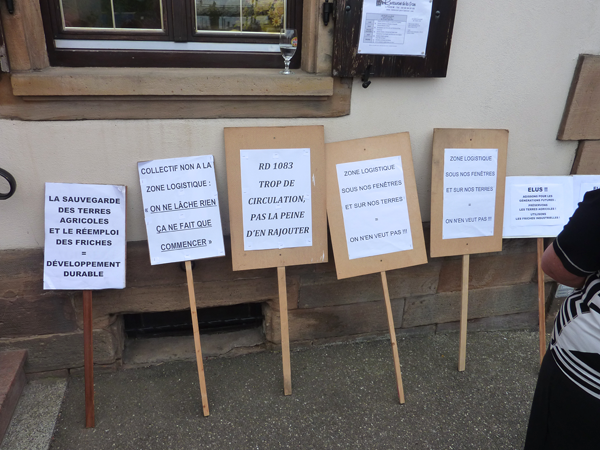 LA SAUVEGARDE
DES TERRES
AGRICOLES
ET LE RÉEMPLOI
DES FRICHES
=
DÉVELOPPEMENT
DURABLE
COLLECTIF NON A LA
ZONE LOGISTIQUE :
« ON NE LÂCHE RIEN
ÇA NE FAIT QUE
COMMENCER »
RD 1083
TROP DE
CIRCULATION,
PAS LA PEINE
D'EN RAJOUTER
ZONE LOGISTIQUE
SOUS NOS FENÊTRES
ET SUR NOS TERRES
=
ON N'EN VEUT PAS !!!
ZONE LOGISTIQUE
SOUS NOS FENÊTRES
ET SUR NOS TERRES
=
ON N'EN VEUT PAS !!!
ELUS !!
GÉNÉRATIONS FUTURES,
LES TERRES AGRICOLES !
LES FRICHES